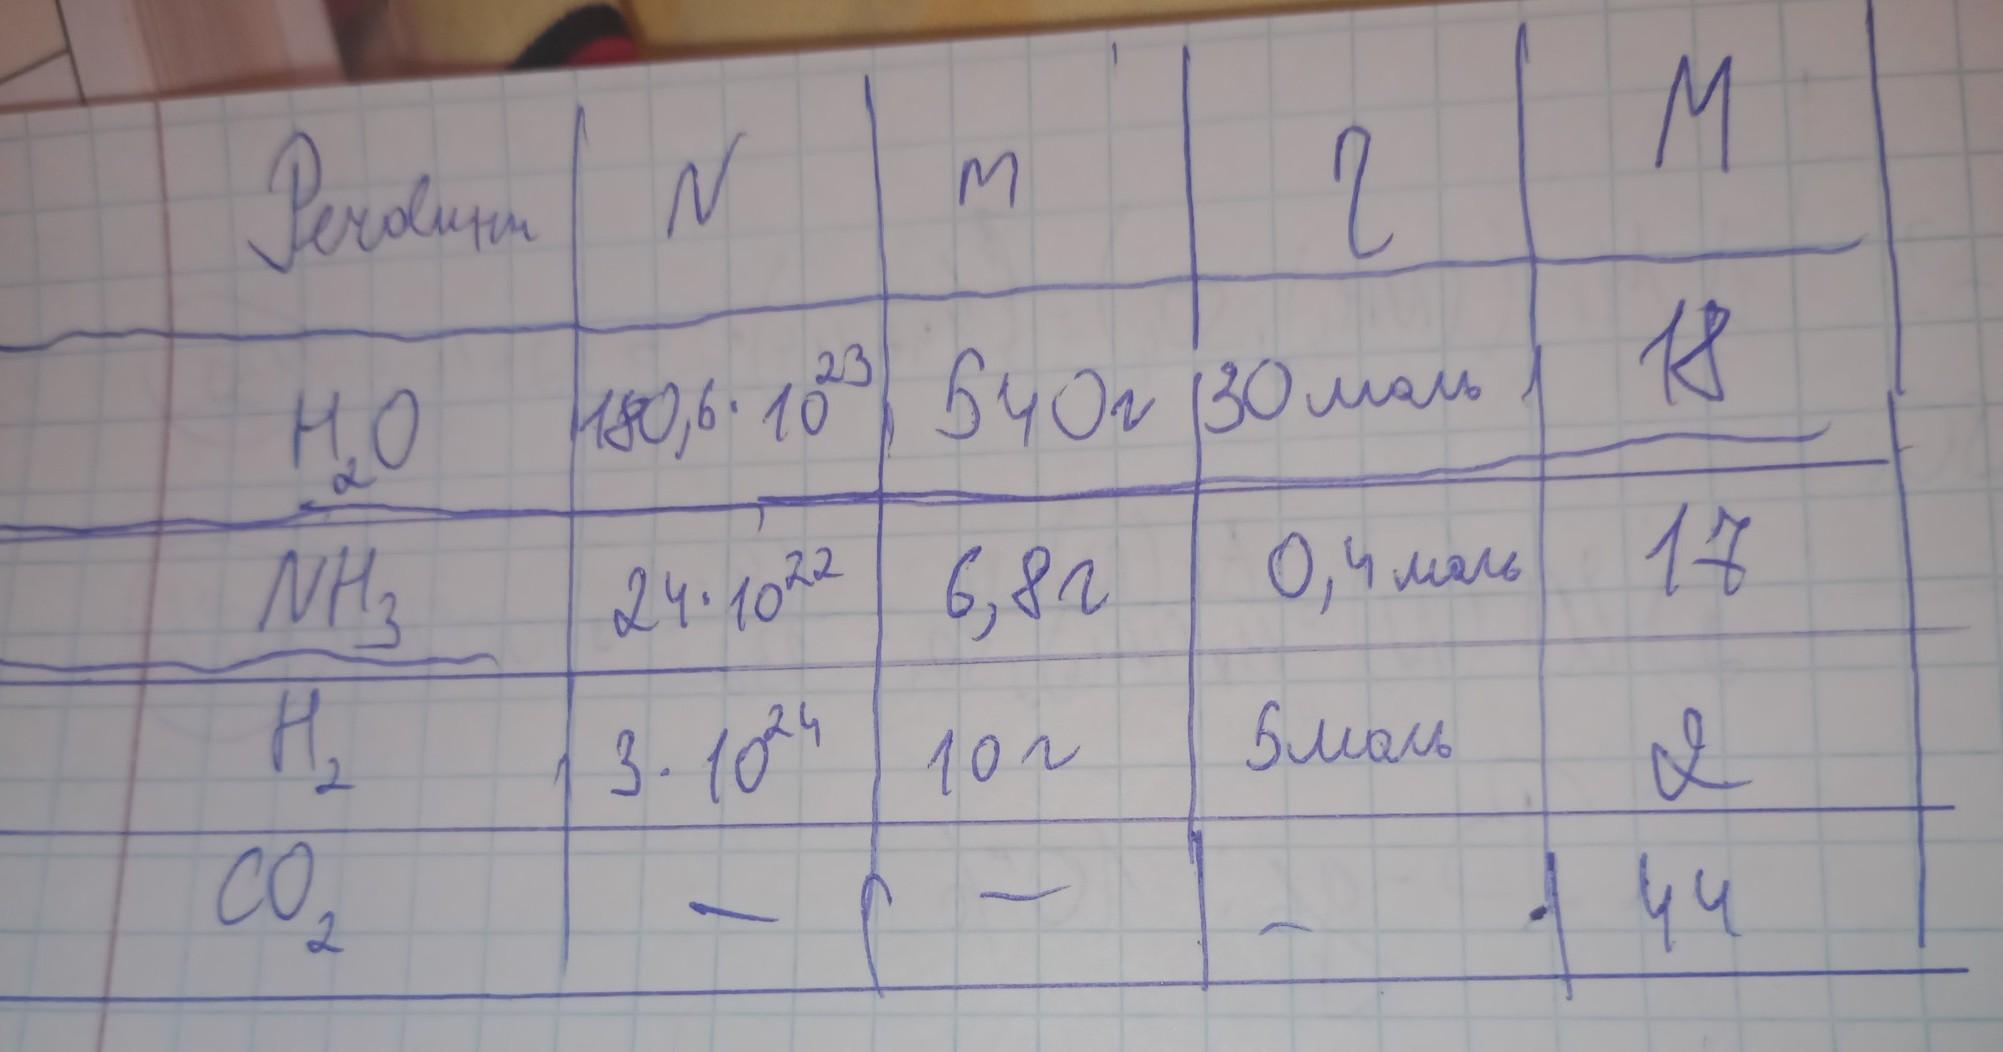 Речовини N m η M
H₂O 180,6·10²³ 540г 30моль 18
NH₃ 24·10²² 6,8г 0,4моль 17
H₂ 3·10²⁴ 10г 5моль 2
CO₂ – – – 44